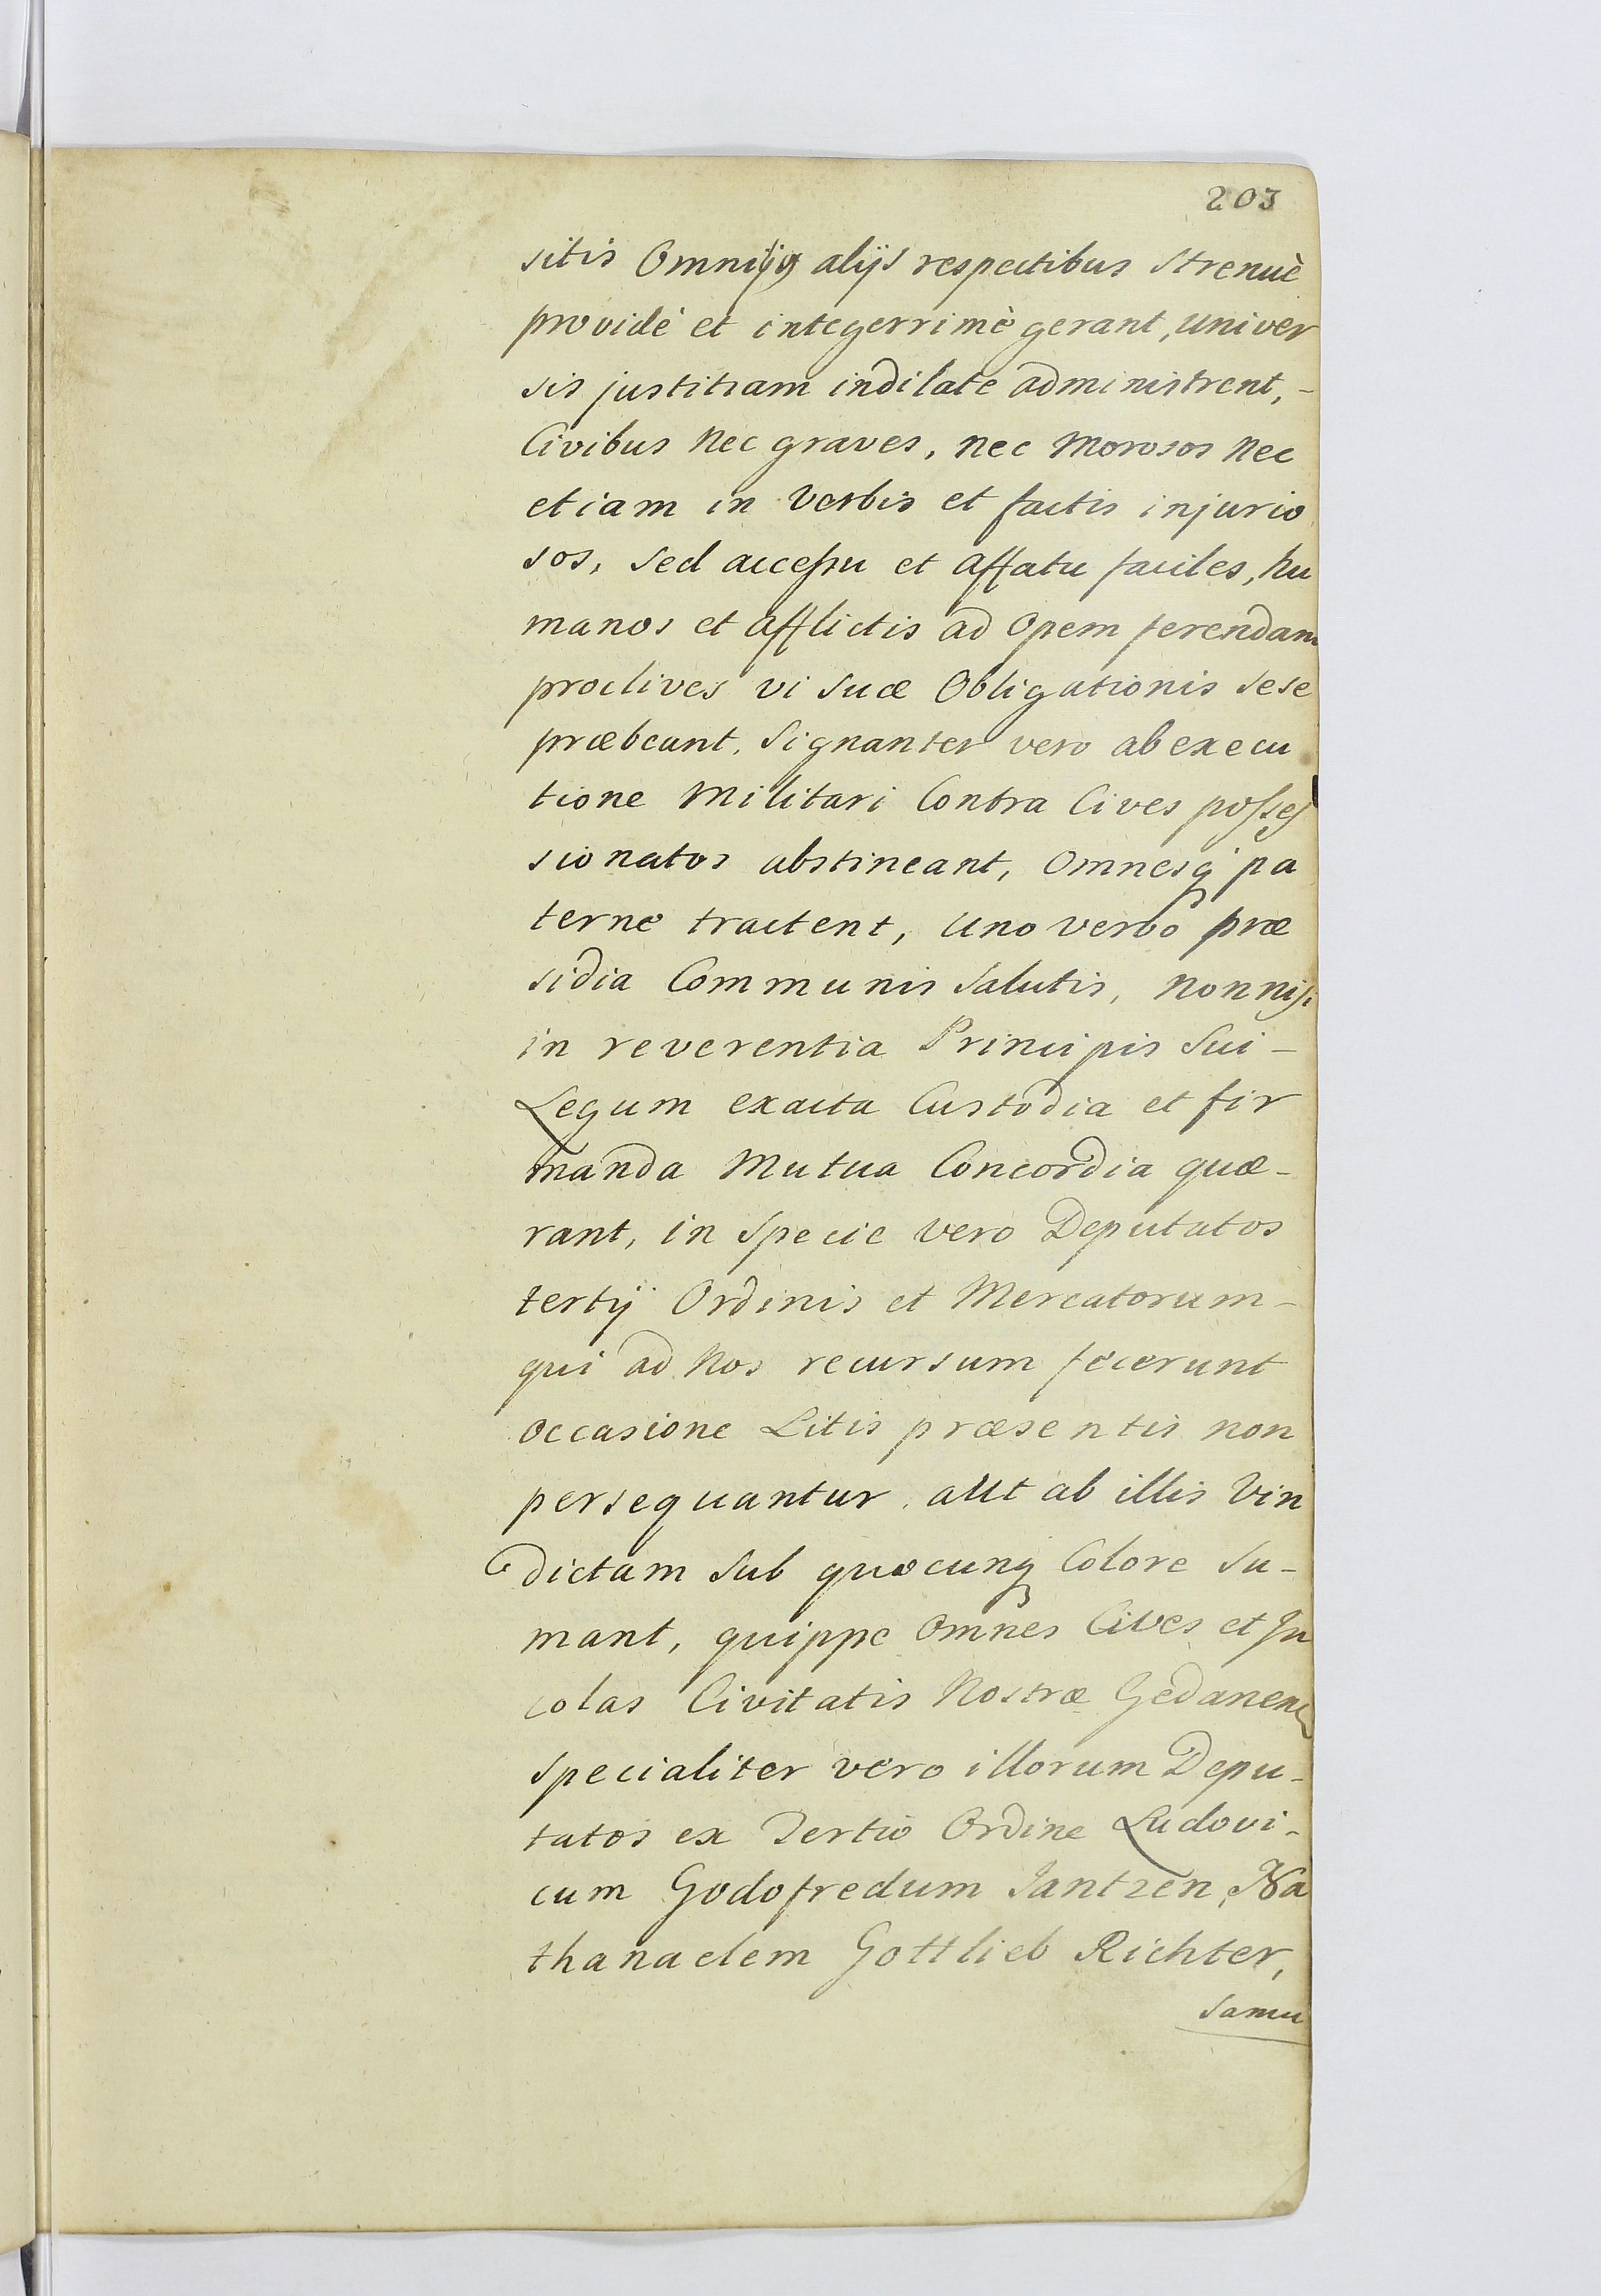 203
sitis Omnijq alijs respectibus Strenuè
providè et integerrimè gerant, univer
sis justitiam indilate administrent, -
Civibus Nec graves, nec Morosos Nec
etiam in Verbis et factis injurio
sos, sed accessu et affatu faciles, hu
manos et afflictis ad Opem ferendam
proclives vi suæ Obligationis sese
præbeant. Signanter vero ab execu
tione Militari Contra Cives posses
sionatos abstineant, Omnesq pa
terne tractent, Uno verbo præ
sidia Communis Salutis, Non nisi
in reverentia Principis Sui -
Legum exacta Custodia et fir
manda Mutua Concordia quæ -
rant, in Specie vero Deputatos
tertij Ordinis et Mercatorum -
qui ad Nos recursum fecerunt
Occasione Litis præsentis non
persequantur, aut ab illis Vin
dictam Sub quocunq Colore Su -
mant, quippe Omnes Cives et In
colas Civitatis Nostræ Gedanens
Specialiter vero illorum Depu -
tatos ex Tertio Ordine Ludovi -
cum Godofredum Jantzen, Na
thanaelem Gottlieb Richter,
Samu